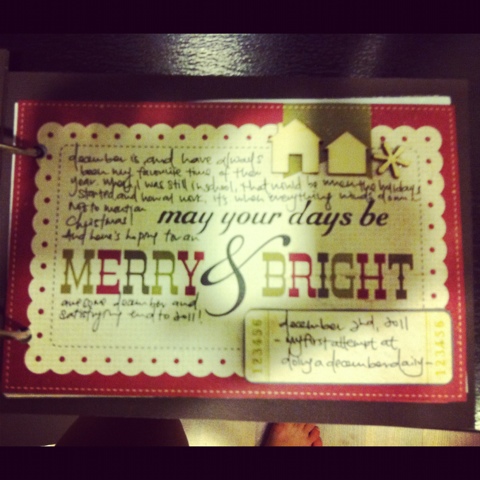 december is and have always
been my favorite time of the
year. when i was still in school, that would be when the holidays
started and now at work, it's when everything winds down.
Not to mention
Christmas!
And here's hoping to an
may your days be
MERRY & BRIGHT
awesome december and
satisfying end to 2011!
123456
december 2nd, 2011
- my first attempt at
doing a december daily -
123456